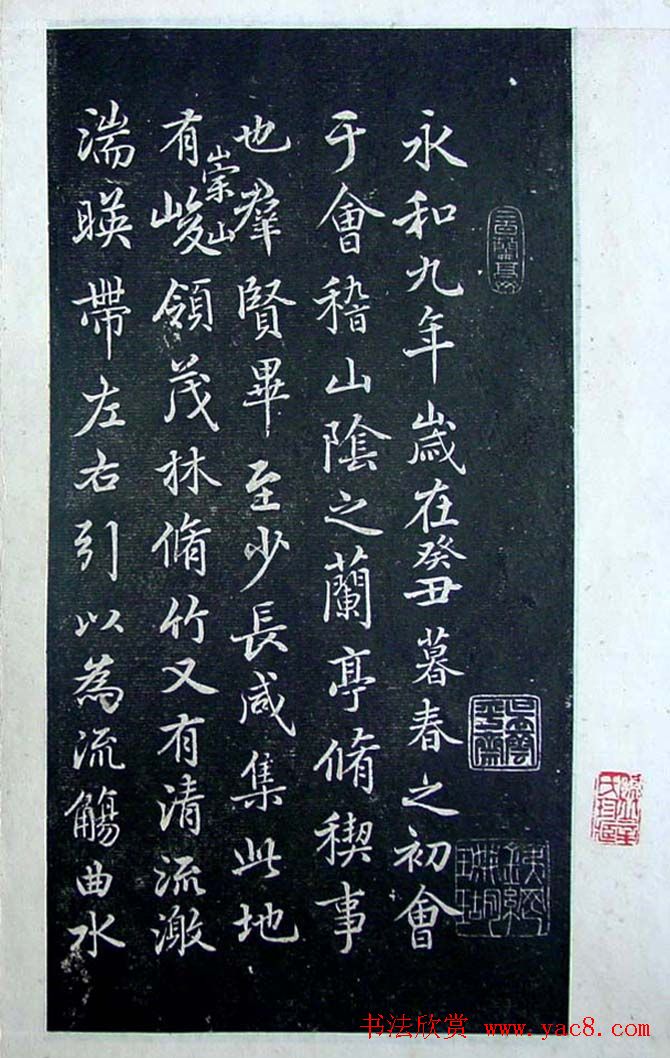 永和九年歲在癸丑暮春之初會
于會稽山陰之蘭亭脩稧事
也羣賢畢至少長咸集此地
有崇山峻領茂林脩竹又有清流激
湍暎帶左右引以為流觴曲水
书法欣赏 www.yac8.com